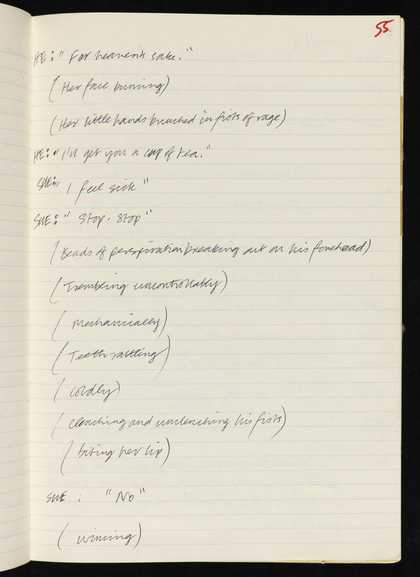 55.
HE: "For heaven's sake."
(Her face burning)
(Her little hands bunched in fists of rage)
HE: "I'll get you a cup of tea."
SHE: I feel sick"
SHE: "Stop. Stop"
(Beads of perspiration breaking out on his forehead)
(Trembling uncontrollably)
(Mechanically)
(Teeth rattling)
(coldly)
(clenching and unclenching his fists)
(biting her lip)
SHE: "No"
(wincing)